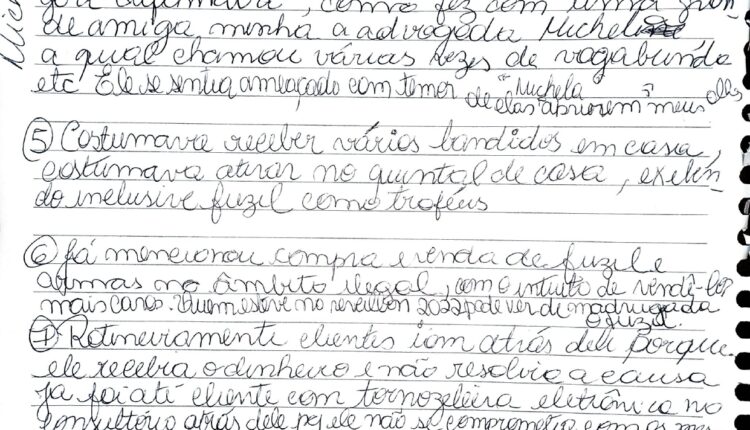 difamava, como fez com uma gran
de amiga minha a advogada Michela
a qual chamou várias vezes de vagabunda
etc Ele se sentia ameaçado com temor de elas "Michela" abrirem meus olhos
5 Costumava receber vários bandidos em casa,
costumava atirar no quintal de casa, exibin
do inclusive fuzil como troféus
6 Já mencionou compra e venda de fuzil e
armas no âmbito ilegal, com o intuito de vendê-los
mais caros. Quem esteve no reveillon 2022 pode ver de madrugada
o fuzil.
7 Rotineiramente clientes iam atrás dele porque
ele recebia o dinheiro e não resolvia a causa
já foi até cliente com tornozeleira eletrônica no
consultório atrás dele pq ele não se comprometia com as